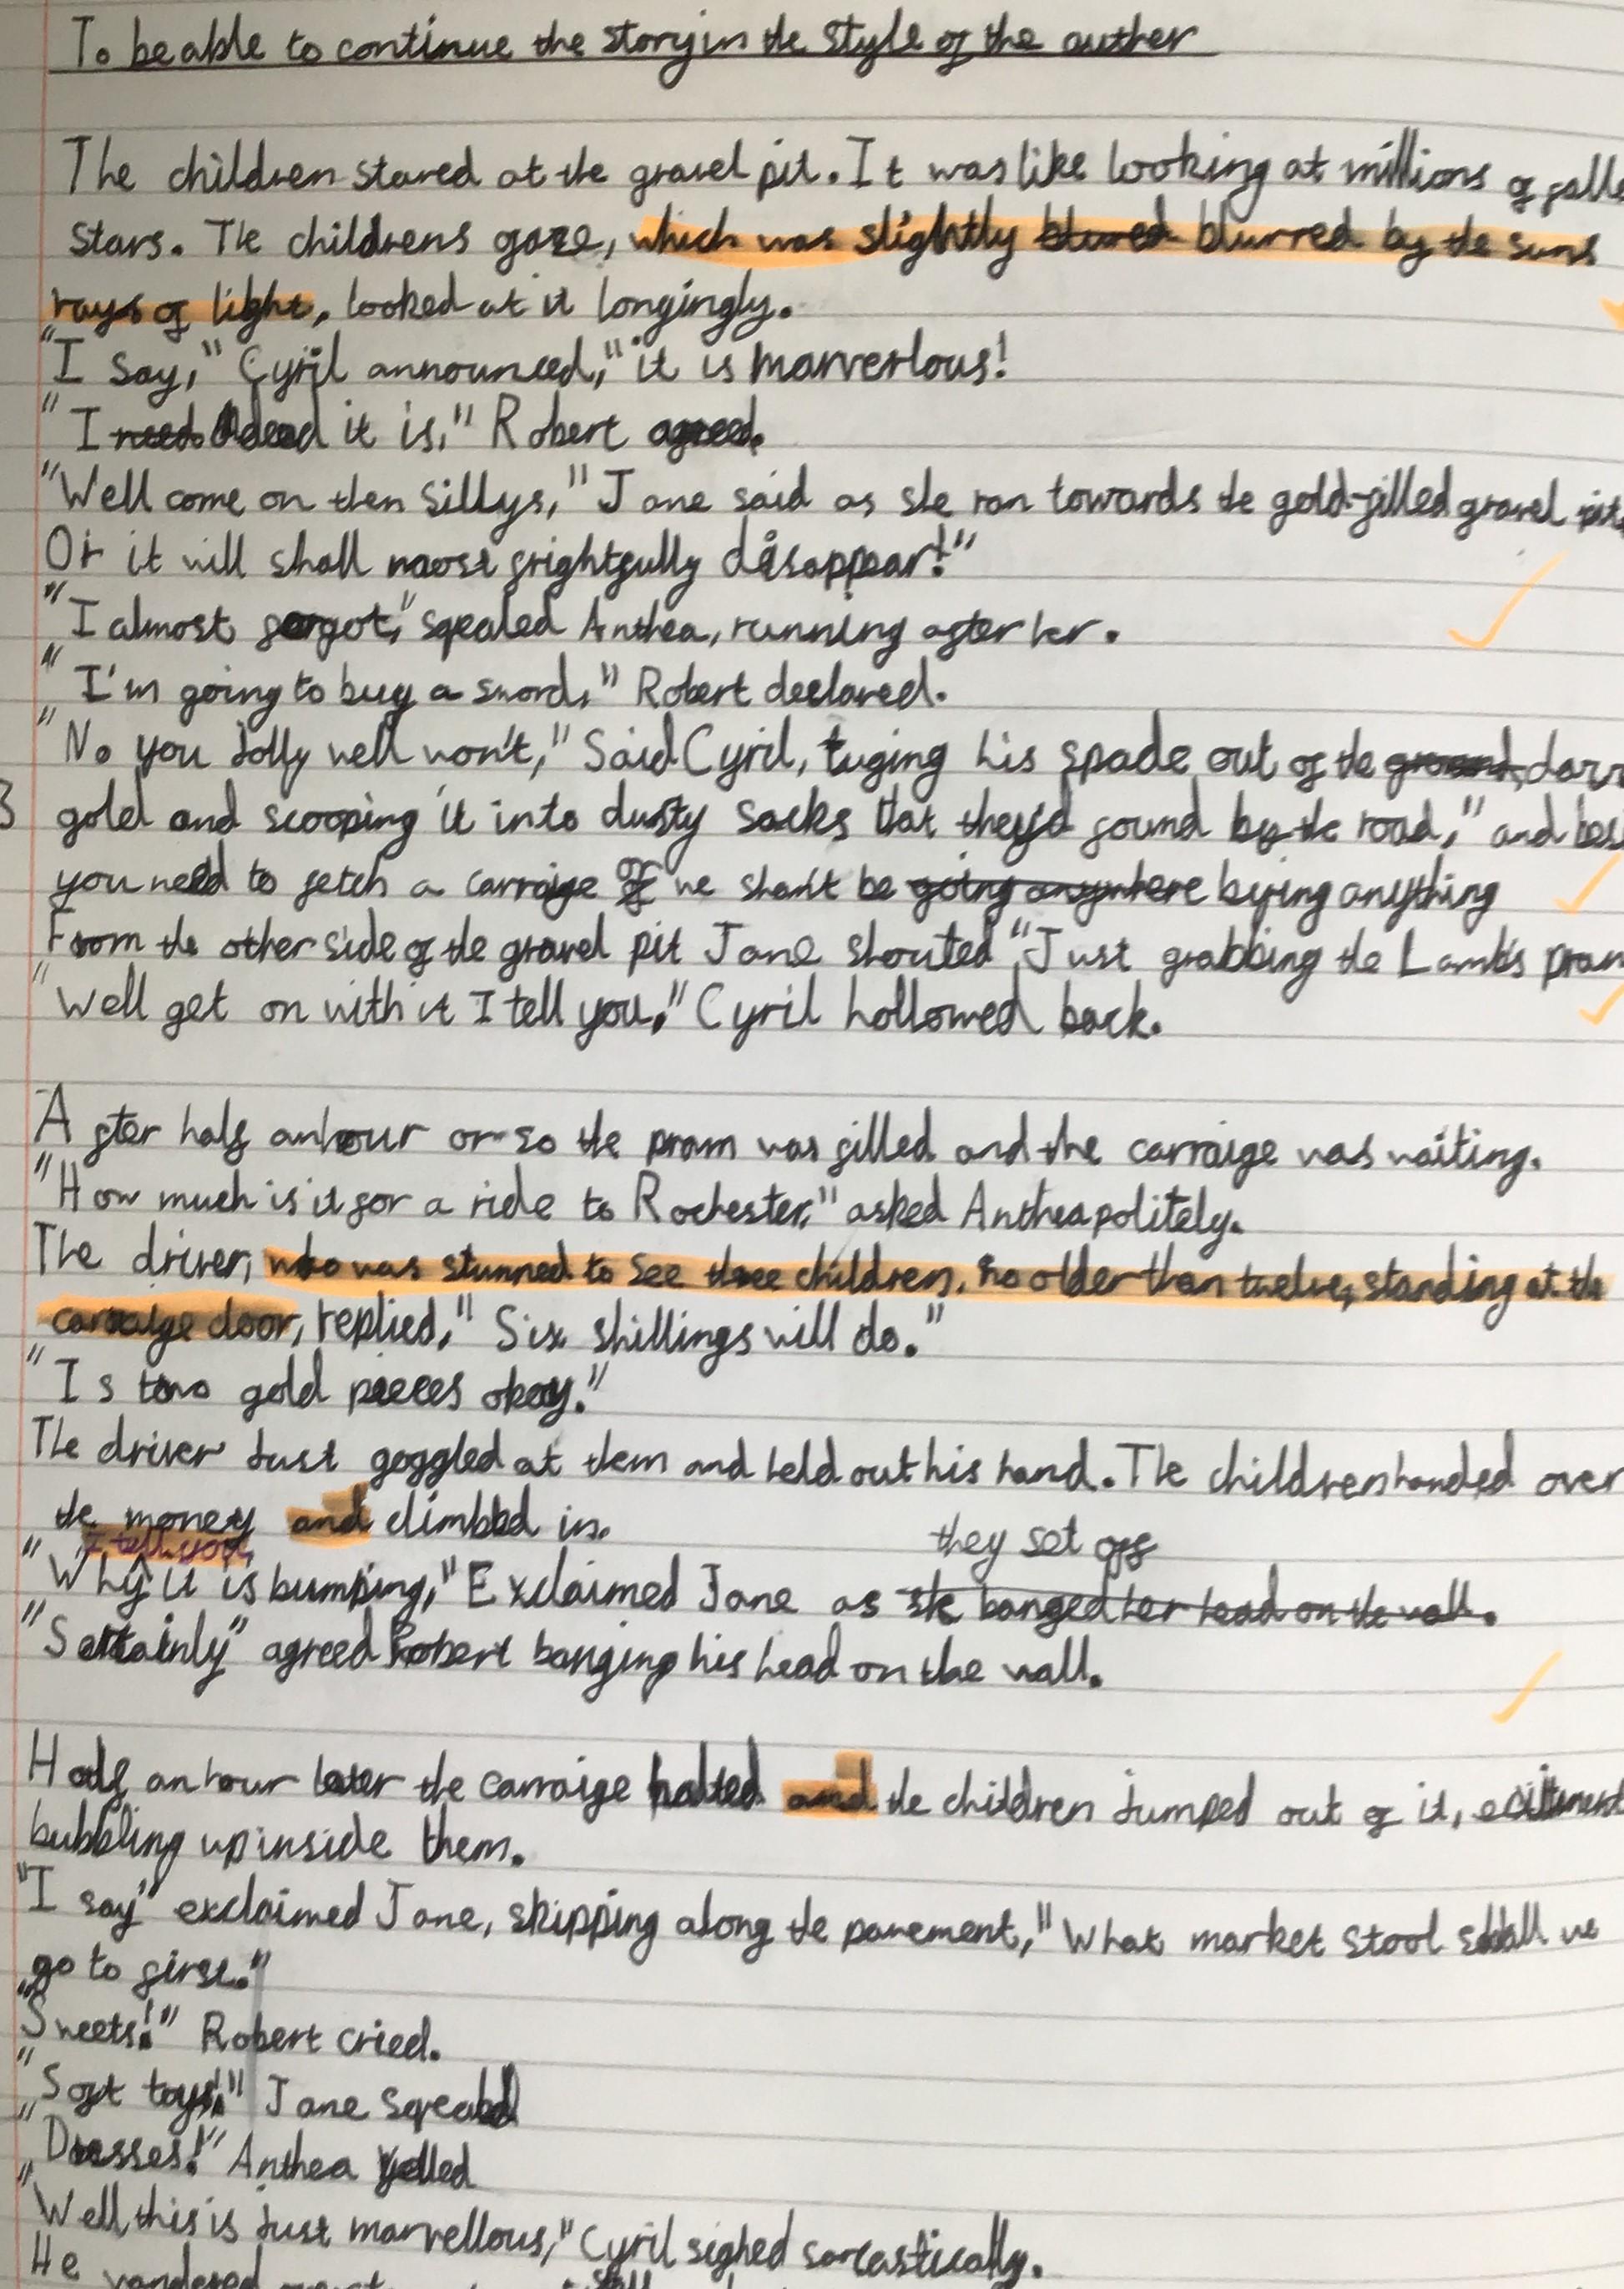 To be able to continue the story in the style of the auther
The children stared at the gravel pit. It was like looking at millions of falle
stars. The childrens gaze, which was slightly blured blurred by the suns
rays of light, looked at it longingly.
"I say," Cyril announced," it is marverlous!
"I need Ndeed it is," Robert agreed.
"Well come on then sillys," Jane said as she ran towards the gold-filled gravel pit,
Or it will shall most frightfully disappear!"
"I almost forgot," sqealed Anthea, running after her.
"I'm going to buy a sword," Robert declared.
"No you jolly well won't," Said Cyril, tuging his spade out of the ground, darn
gold and scooping it into dusty sacks that they'd found by the road," and bes
you need to fetch a carraige or we shan't be going anywhere bying anything
From the other side of the gravel pit Jane shouted "Just grabbing the Lamb's pram
"Well get on with it I tell you," Cyril hollowed back.
After half an hour or so the pram was filled and the carraige was waiting.
"How much is it for a ride to Rochester," asked Anthea politely.
The driver, who was stunned to see three children, no older than twelve, standing at the
carraige door, replied," Six shillings will do."
"Is two gold pieces okay."
The driver just goggled at them and held out his hand. The children handed over
the money and climbed in.
I tell you, they set off
"Why it is bumping," Exclaimed Jane as she banged her head on the wall.
"Sertainly" agreed Robert banging his head on the wall.
Half an hour later the carraige halted and the children jumped out of it, exitiment
bubbling up inside them.
"I say" exclaimed Jane, skipping along the pavement," What market stool shall we
go to first."
"Sweets!" Robert cried.
"Soft toys!" Jane sqealed
"Dresses!" Anthea yelled
"Well this is just marvellous," Cyril sighed sarcastically.
He